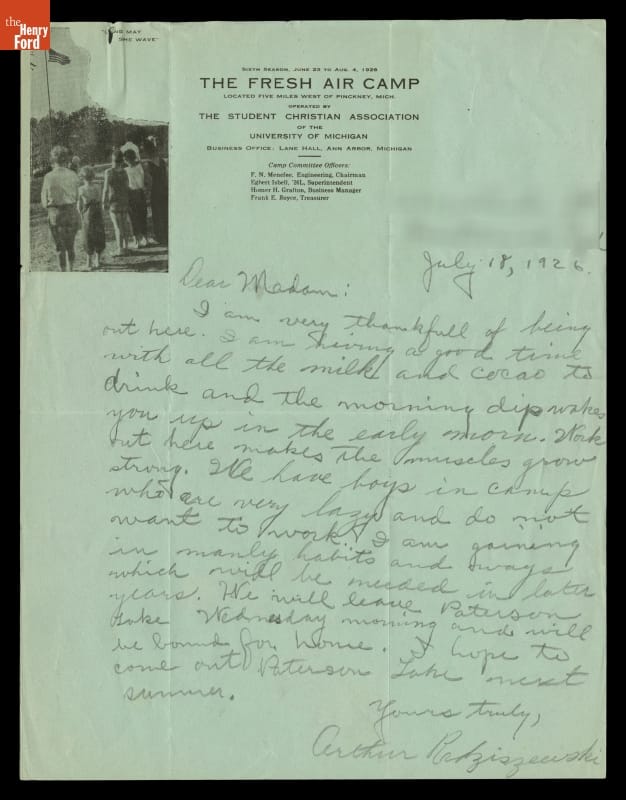 the
Henry
Ford
"LONG MAY
SHE WAVE"
SIXTH SEASON, JUNE 23 TO AUG. 4, 1926
THE FRESH AIR CAMP
LOCATED FIVE MILES WEST OF PINCKNEY, MICH.
OPERATED BY
THE STUDENT CHRISTIAN ASSOCIATION
OF THE
UNIVERSITY OF MICHIGAN
BUSINESS OFFICE: LANE HALL, ANN ARBOR, MICHIGAN
Camp Committee Officers:
F. N. Menefee, Engineering, Chairman
Egbert Isbell, '26L, Superintendent
Homer H. Grafton, Business Manager
Frank E. Royce, Treasurer
July 18, 1926.
Dear Madam:
I am very thankfull of being
out here. I am having a good time
with all the milk and cocao to
drink and the morning dip wakes
you up in the early morn. Work
out here makes the muscles grow
strong. We have boys in camp
who are very lazy and do not
want to work. I am gaining
in manly habits and ways
which will be needed in later
years. We will leave Paterson
Lake Wednesday morning and will
be bound for home. I hope to
come out Paterson Lake next
summer.
Yours truly,
Arthur Radziszewski